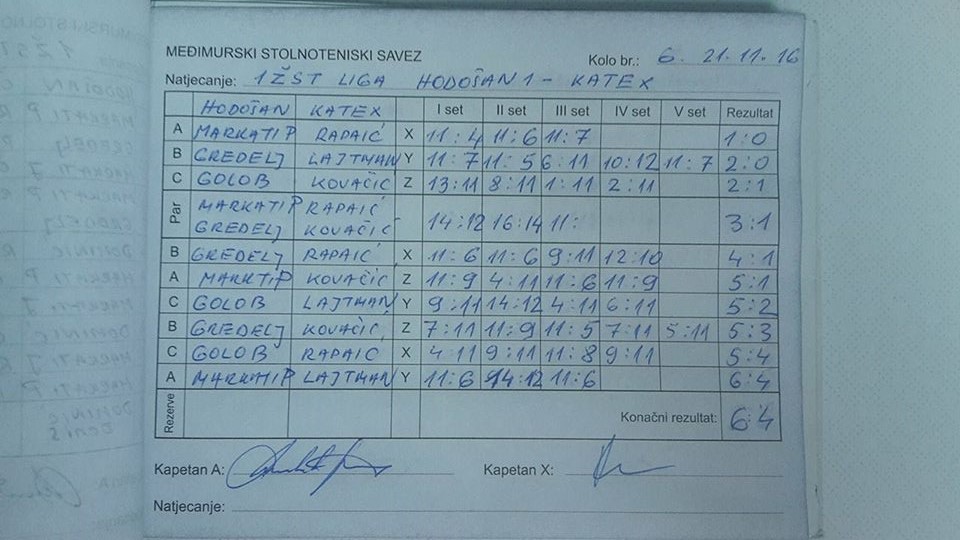 MEĐIMURSKI STOLNOTENISKI SAVEZ
Kolo br.: 6. 21.11.16
Natjecanje: 1 ŽST LIGA HODOŠAN 1 - KATEX
HODOŠAN KATEX I set II set III set IV set V set Rezultat
A MARKATI P RAPAIĆ X 11:4 11:6 11:7 1:0
B GREDELJ LAJTMAN Y 11:7 11:5 6:11 10:12 11:7 2:0
C GOLOB KOVAČIĆ Z 13:11 8:11 1:11 2:11 2:1
Par MARKATI P RAPAIĆ
GREDELJ KOVAČIĆ 14:12 16:14 11: 3:1
B GREDELJ RAPAIĆ X 11:6 11:6 9:11 12:10 4:1
A MARKTI P KOVAČIĆ Z 11:9 4:11 11:6 11:9 5:1
C GOLOB LAJTMAN Y 9:11 14:12 4:11 6:11 5:2
B GREDELJ KOVAČIĆ Z 7:11 11:9 11:5 7:11 5:11 5:3
C GOLOB RAPAIĆ X 4:11 9:11 11:8 9:11 5:4
A MARKATI P LAJTMAN Y 11:6 14:12 11:6 6:4
Rezerve Konačni rezultat: 6:4
Kapetan A: Kapetan X:
Natjecanje: